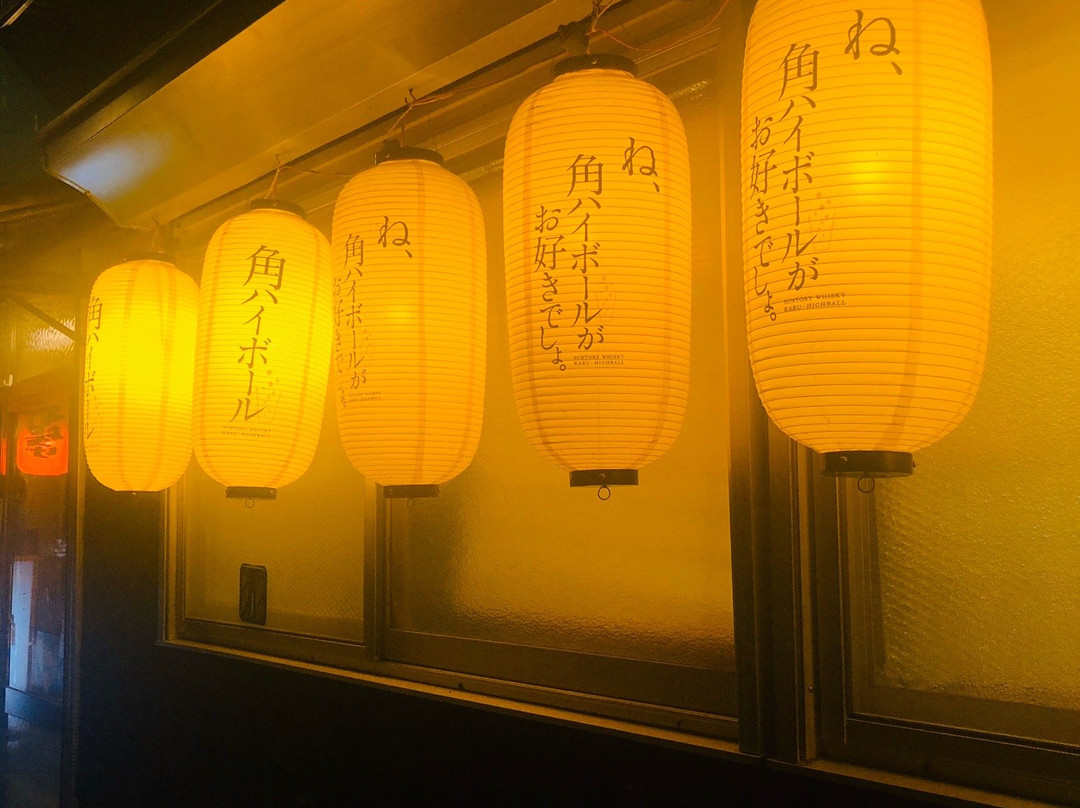 角ハイボール
角ハイボール
SUNTORY WHISKY
KAKU-HIGHBALL
ね、
角ハイボールが
お好きでしょ。
ね、
角ハイボールが
お好きでしょ。
SUNTORY WHISKY
KAKU-HIGHBALL
ね、
角ハイボールが
お好きでしょ。
SUNTORY WHISKY
KAKU-HIGHBALL